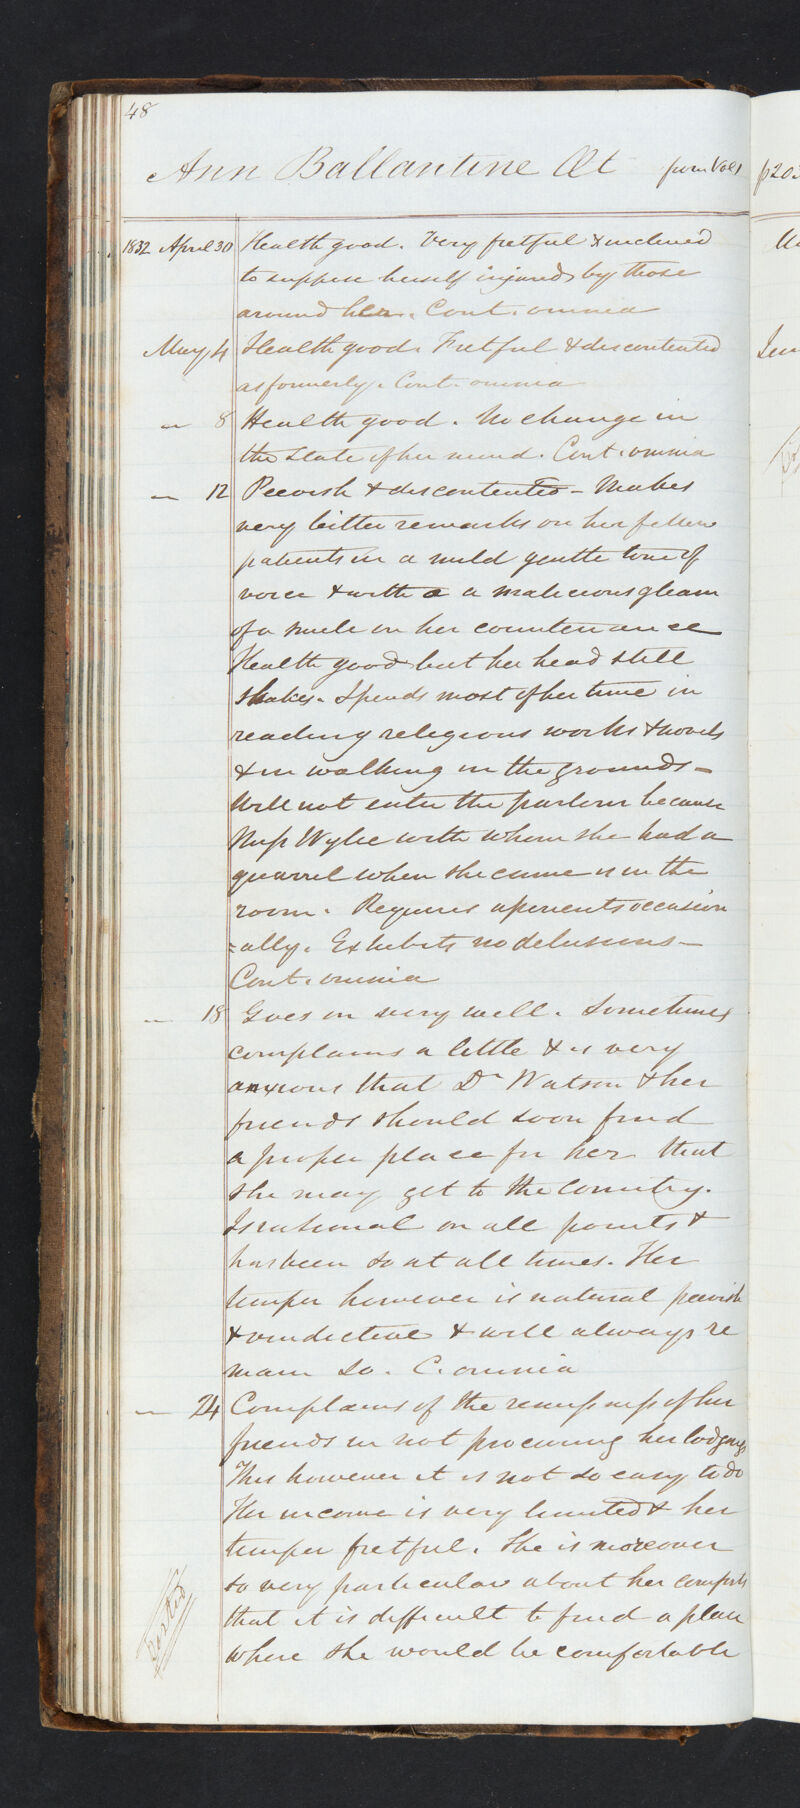 48
Ann Ballantine Æt from Vol 1 p 203
1832 April 30 Health good. Very fretful & inclined
to suppose herself injured by those
around her. Cont. omnia
May 4 Health good. Fretful & discontented
as formerly. Cont. omnia
" 8 Health good. No change in
the state of her mind. Cont. omnia
" 12 Peevish & discontented - Makes
very bitter remarks on her fellow
patients in a mild gentle tone of
voice & with a a malicious gleam
of a smile on her countenance
Health good but her head still
shakes. Spends most of her time in
reading religious works & novels
& in walking in the grounds -
Will not enter the parlour because
Miss Wylie with whom she had a
quarrel when she came is in the
room. Requires aperients occasion
=ally. Exhibits no delusions -
Cont. omnia
" 18 Goes on very well. Sometimes
complains a little & is very
anxious that Dr Watson & her
friends should soon find
a proper place for her that
she may get to the Country.
Is rational on all points &
has been so at all times. Her
temper however is natural peevish
& vindictive & will always re
main so. C. omnia
" 24 Complains of the remissness of her
friends in not procuring her lodgings
This however it is not so easy to do
Her income is very limited & her
temper fretful. She is moreover
so very particular about her comforts
that it is difficult to find a place
where she would be comfortable